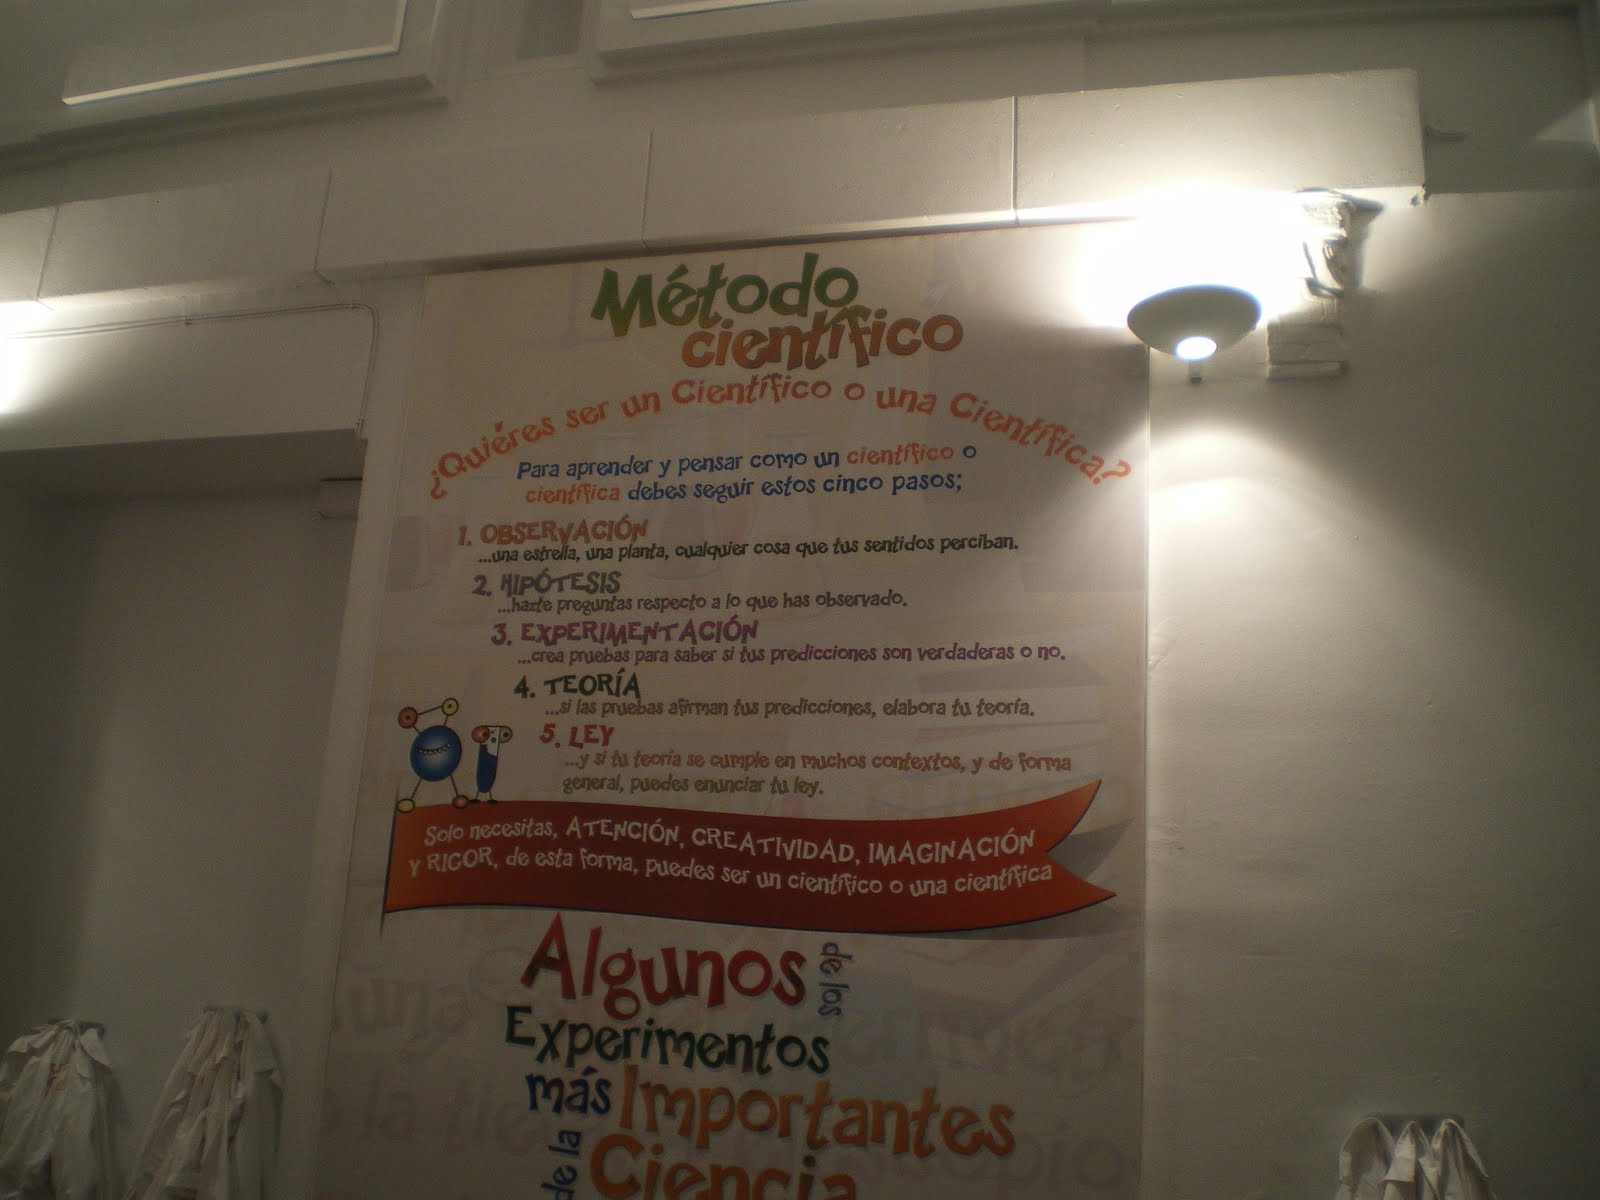 Método
científico
¿Quiéres ser un Científico o una Científica?
Para aprender y pensar como un científico o
científica debes seguir estos cinco pasos;
1. OBSERVACIÓN
...una estrella, una planta, cualquier cosa que tus sentidos perciban.
2. HIPÓTESIS
...hazte preguntas respecto a lo que has observado.
3. EXPERIMENTACIÓN
...crea pruebas para saber si tus predicciones son verdaderas o no.
4. TEORÍA
...si las pruebas afirman tus predicciones, elabora tu teoría.
5. LEY
...y si tu teoría se cumple en muchos contextos, y de forma
general, puedes enunciar tu ley.
Solo necesitas, ATENCIÓN, CREATIVIDAD, IMAGINACIÓN
Y RIGOR, de esta forma, puedes ser un científico o una científica
Algunos de los
Experimentos
más Importantes
de la Ciencia